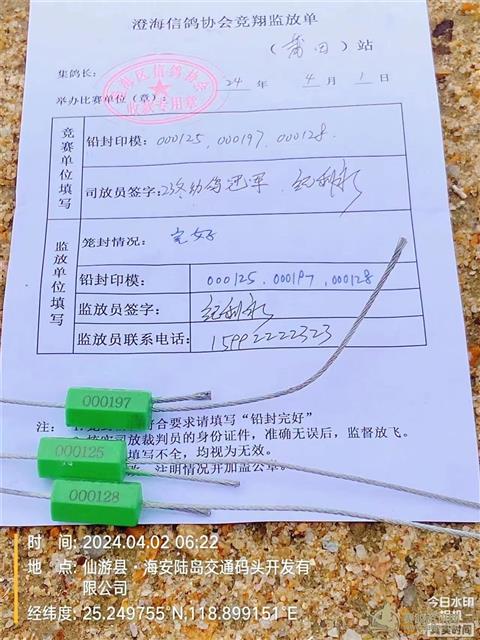 澄海信鸽协会竞翔监放单
（莆田）站
集鸽长：
24 年 4 月 1 日
举办比赛单位（章）：
澄海区信鸽协会
收款专用章
竞赛单位填写
铅封印模：000125、000197、000128.
司放员签字：23冬幼鸽冠军、纪利永
监放单位填写
笼封情况：完好
铅封印模：000125、000197、000128
监放员签字：纪利永
监放员联系电话：15992222323
000197
注：
符合要求请填写“铅封完好”
司放裁判员的身份证件，准确无误后，监督放飞。
000125
填写不全，均视为无效。
注明情况并加盖公章。
000128
时 间: 2024.04.02 06:22
地 点: 仙游县·海安陆岛交通码头开发有
限公司
经纬度: 25.249755°N,118.899151°E
今日水印
相机
真实时间